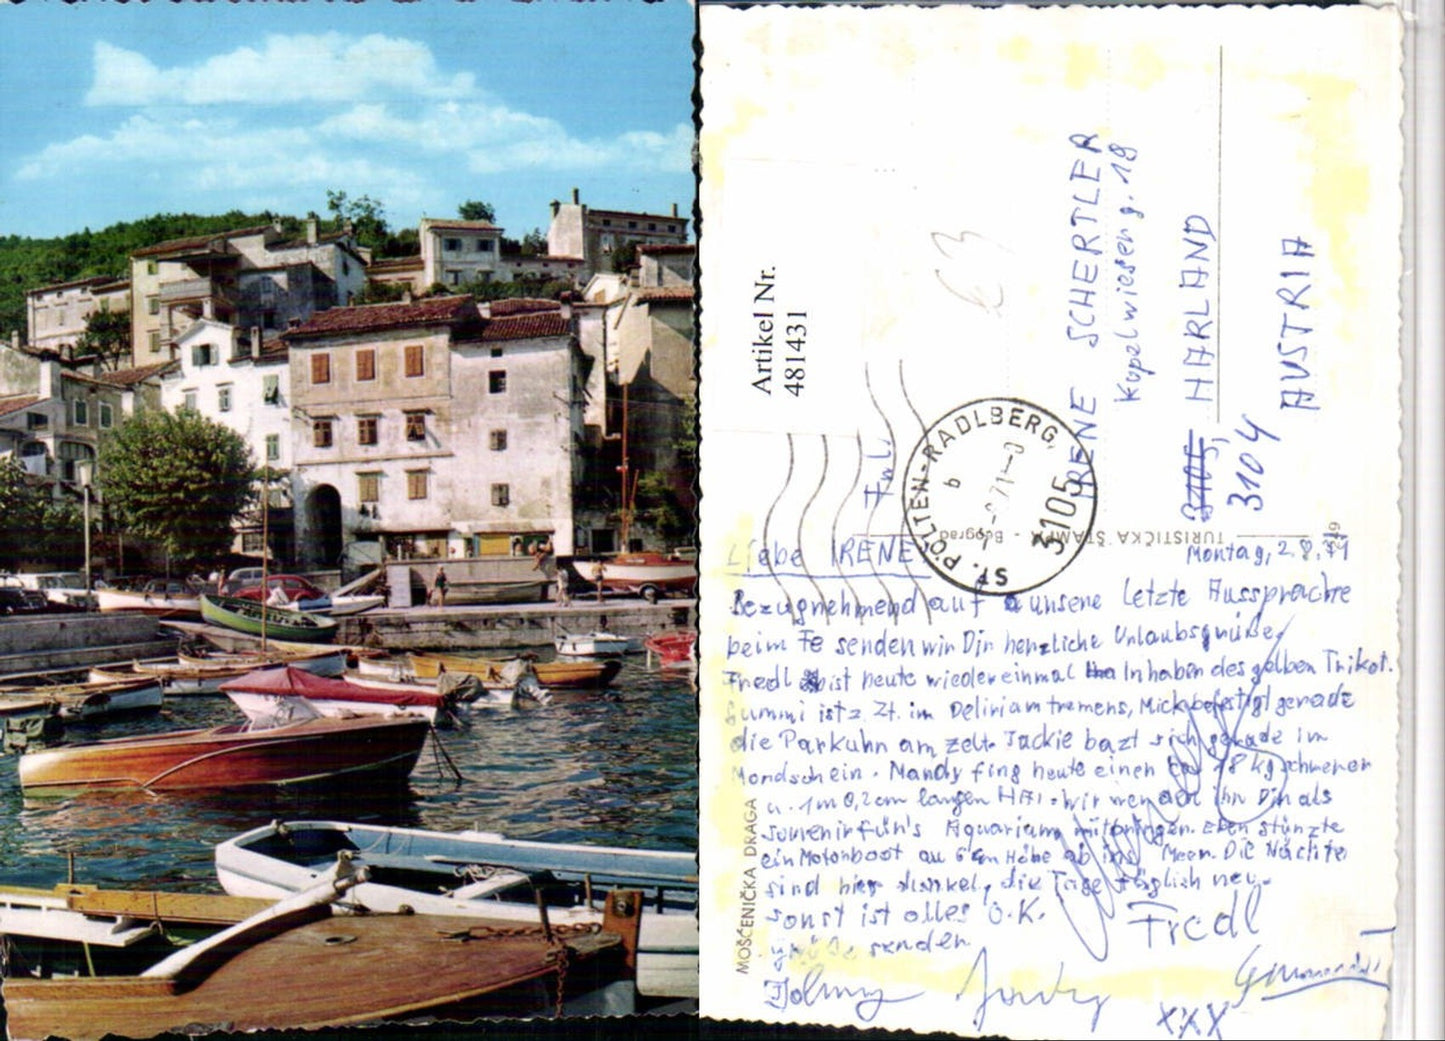 Artikel Nr.
481431
€3
IRENE SCHERTLER
Kapelwieseng. 18
3105,
HARLAND
3104
AUSTRIA
ST. PÖLTEN-RADLBERG,
b
3105
TURISTIČKA ŠTAMPA - Beograd
MOŠĆENIČKA DRAGA
Montag, 2.8.71
Liebe IRENE
Bezugnehmend auf unsere letzte Aussprache
beim Fe senden wir Dir herzliche Urlaubsgrüße.
Friedl ist heute wiedereinmal Inhaber des gelben Trikot.
Gummi ist z. Zt. im Deliriamtremens, Mick befestigt gerade
die Parkuhr am Zelt. Jackie bazt sich gerade im
Mondschein. Mandy fing heute einen ca 18 kg schweren
u. 1m 0,2cm langen HAI. Wir werden ihn Dir als
Souvenir für's Aquarium mitbringen. Eben stürzte
ein Motorboot au 6 cm Höhe ab ins Meer. Die Nächte
sind hier dunkel, die Tage täglich neu.
Sonst ist alles O.K.
Grüße senden
Friedl
XXX